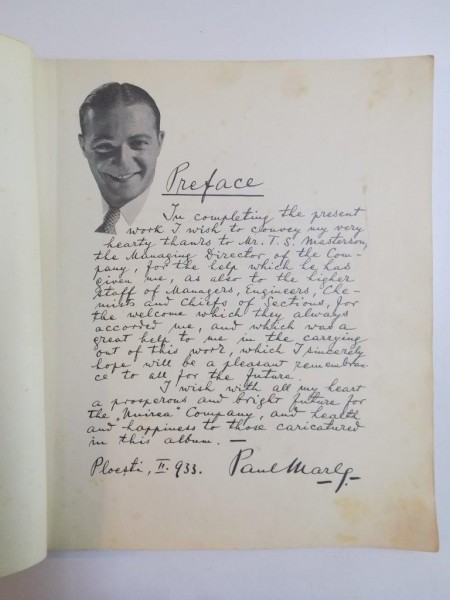 Preface
In completing the present
work I wish to convey my very
hearty thanks to Mr. T. S. Masterson,
the Managing Director of the Com-
pany, for the help which he has
given me, as also to the higher
staff of Managers, Engineers, Che-
mists and Chiefs of Sections, for
the welcome which they always
accorded me, and which was a
great help to me in the carrying
out of this work, which I sincerely
hope will be a pleasant remembran-
ce to all for the future.
I wish with all my heart
a prosperous and bright future for
the "Unirea" Company, and health
and happiness to those caricatured
in this album. —
Ploești, II. 933. Paul